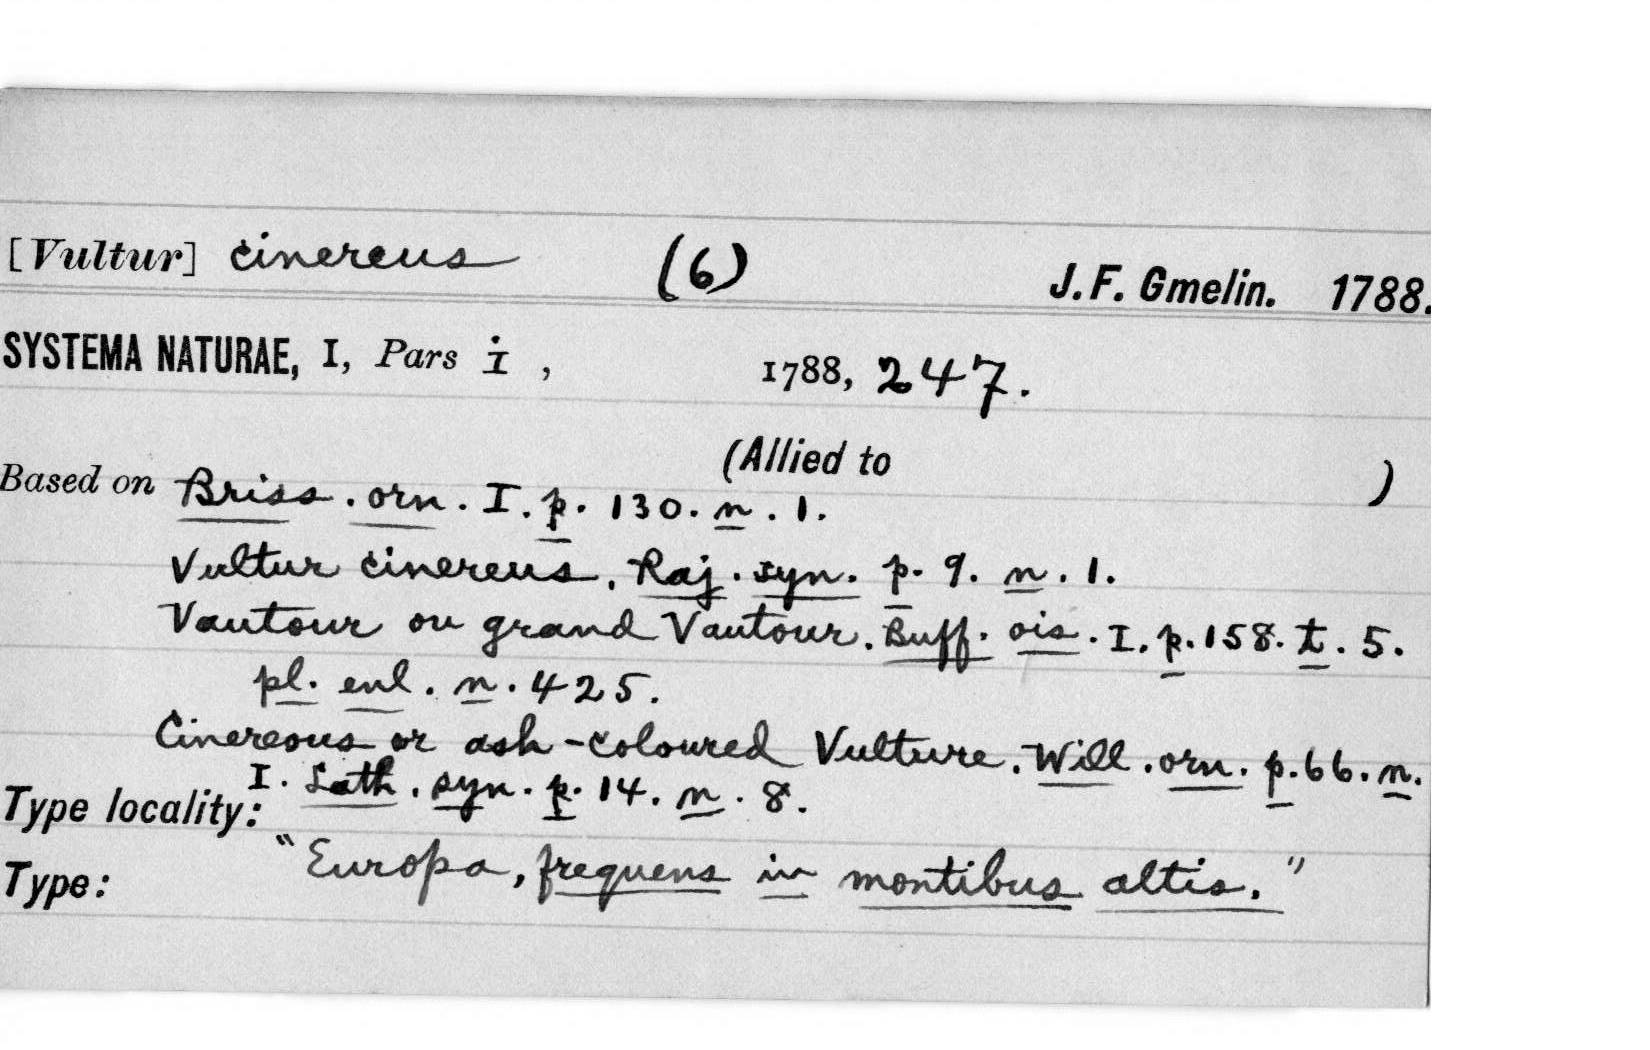 [Vultur] cinereus (6) J. F. Gmelin. 1788.
SYSTEMA NATURAE, I, Pars i, 1788, 247.
(Allied to )
Based on Briss. orn. I. p. 130. n. 1.
Vultur cinereus. Raj. syn. p. 9. n. 1.
Vautour ou grand Vautour. Buff. ois. I. p. 158. t. 5.
pl. enl. n. 425.
Cinereous or ash-coloured Vulture. Will. orn. p. 66. n.
I. Lath. syn. p. 14. n. 8.
Type locality:
"Europa, frequens in montibus altis."
Type: